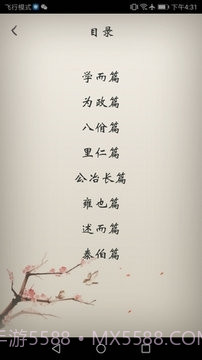 飞行模式 下午4:31
目录
学而篇
为政篇
八佾篇
里仁篇
公冶长篇
雍也篇
述而篇
泰伯篇
手游5588 - MX5588.COM